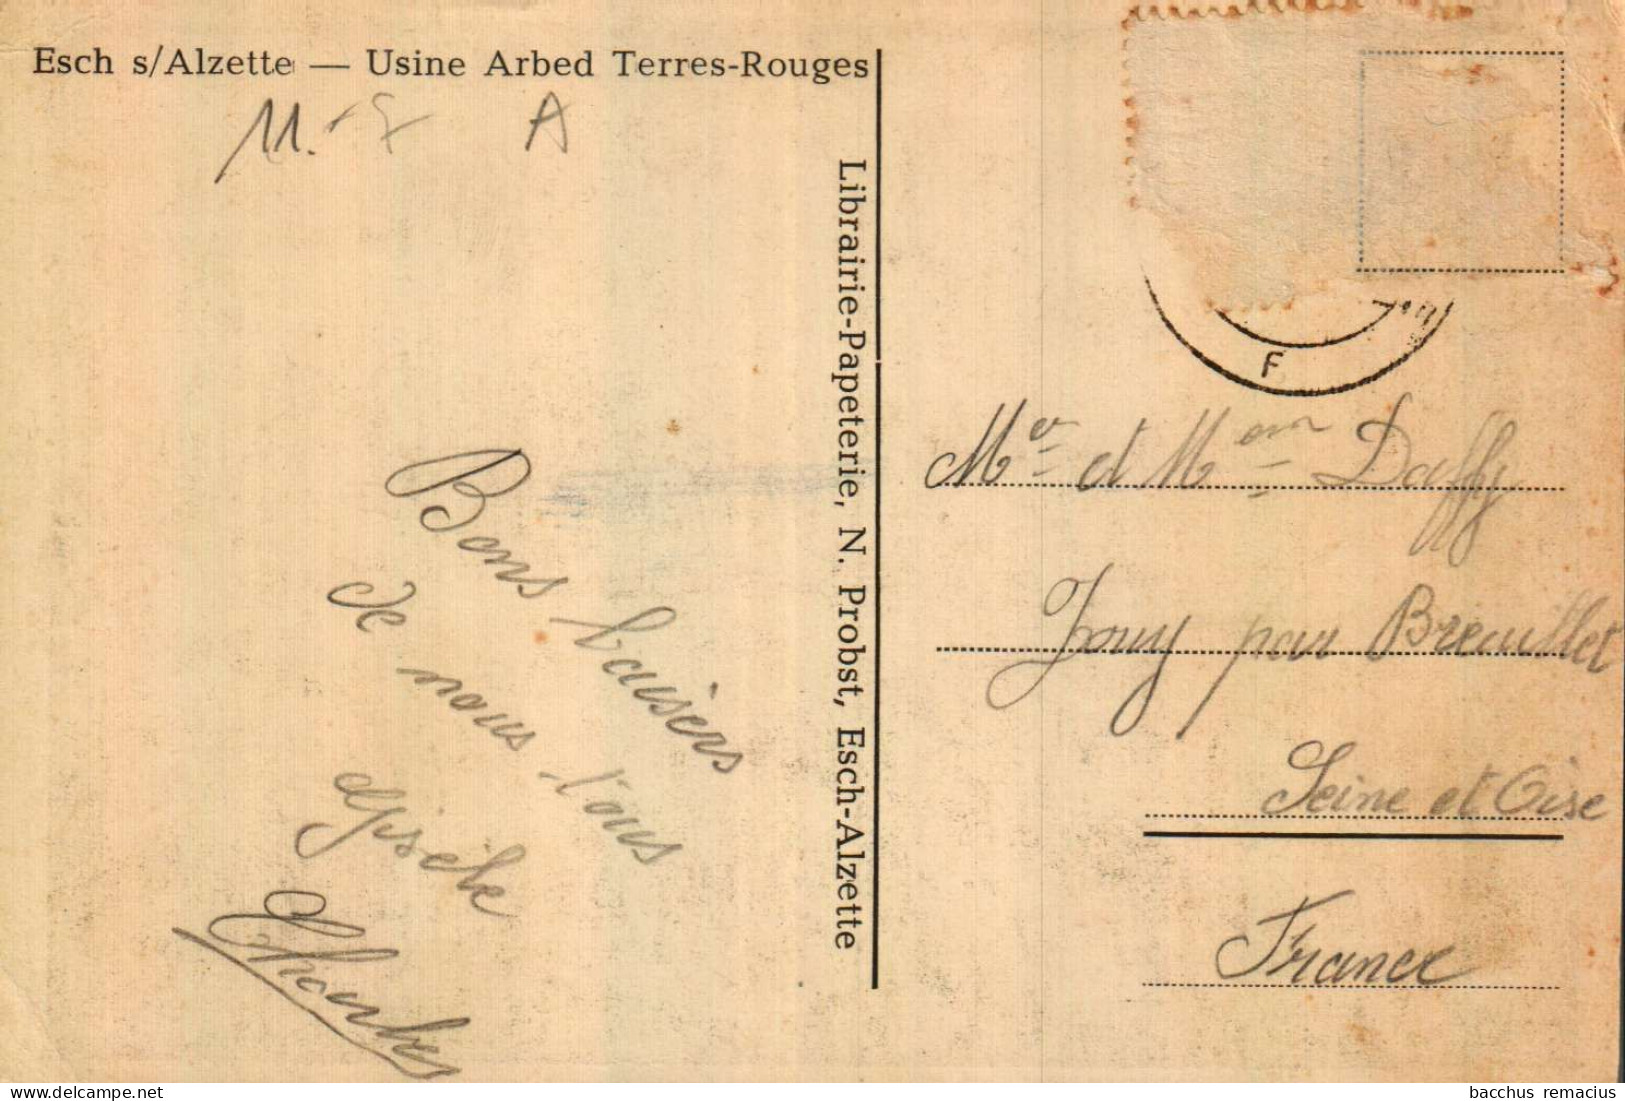 Esch s/Alzette — Usine Arbed Terres-Rouges
11. A
Librairie-Papeterie, N. Probst, Esch-Alzette
F
Bons baisers
de nous tous
Gisèle
Charles
Mr et Mem Daffy
Jouy par Breuillet
Seine et Oise
France
bacchus remacius